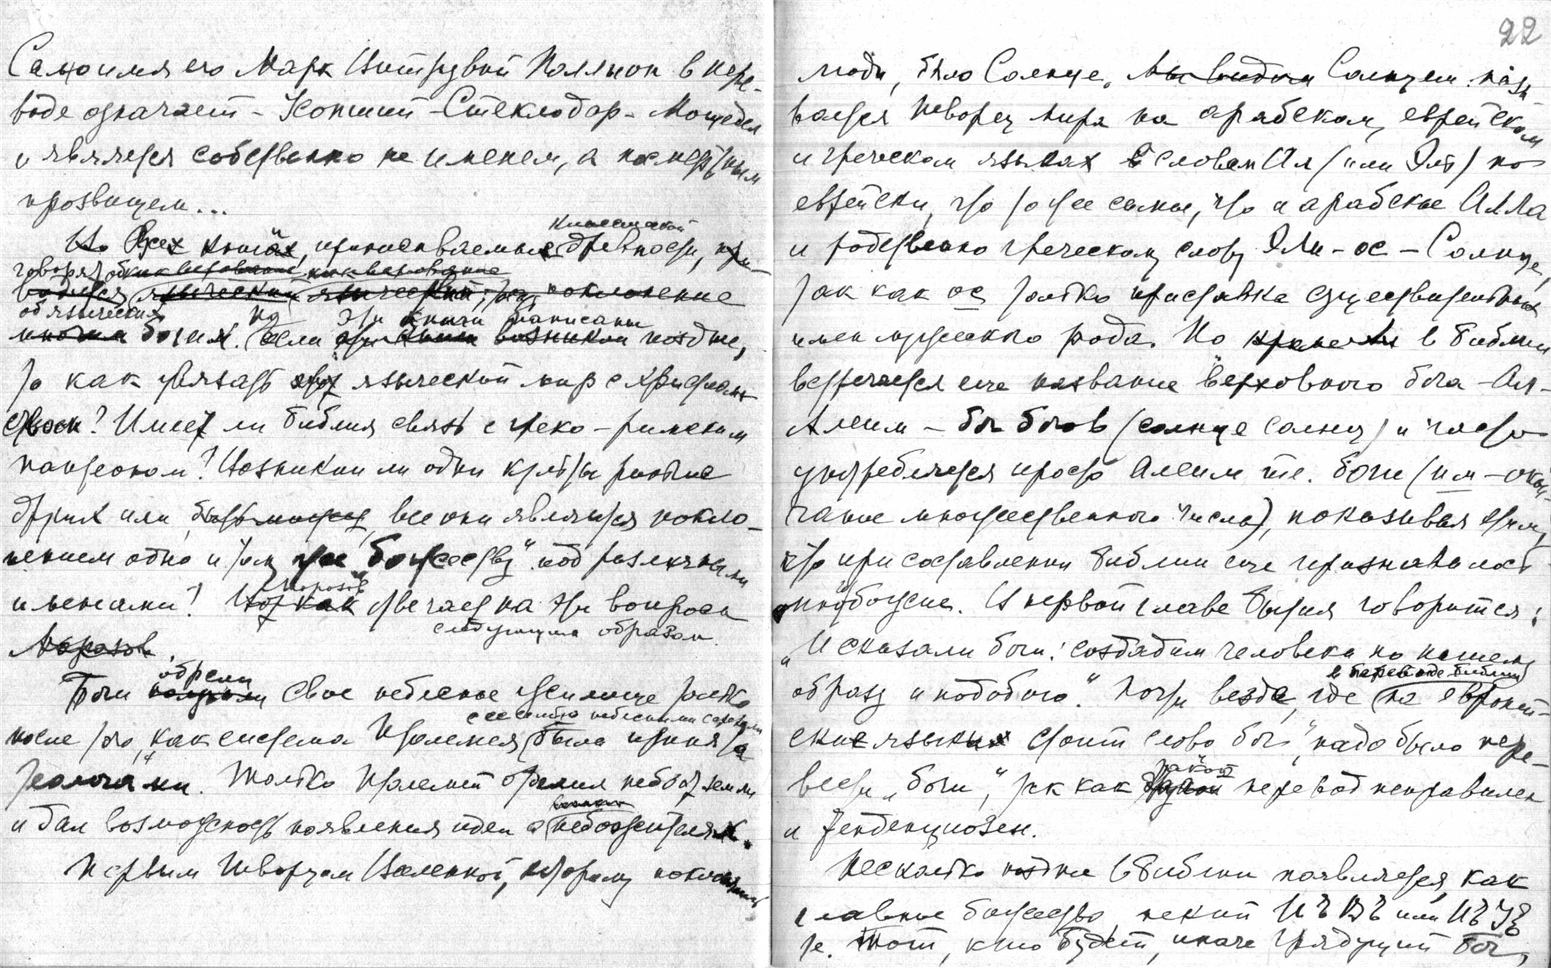 Само имя его Марк Витрувий Поллион в пере-
воде означает - Копший - Стеклодар - Мощедел
и является собственно не именем, а посмертным
прозвищем...
классической
Во Всех книгах, приписываемых древности,
говорят об
поклонение
об языческих но эти книги написаны
богих. если позднее,
то как увязать этот языческий мир с христиан-
ством? Имеет ли библия связь с греко-римским
пантеоном? Возникли ли одни культы раньше
других или, быть может, все они являются покло-
нением одно и тому же "божеству" под различными
Морозов
именами? Вот как отвечает на эти вопросы
следующим образом
Морозов.
обрели
Боги получили свое небесное жилище только
с ее семью небесными сферами
после того, как система Птолемея была принята
теологами. Только Птолемей отделил небо от земли
и дал возможность появления идеи о небожителях.
Первым Творцом Вселенной, которому поклонялись
22
люди, было Солнце. Мы видим Солнцем назы
вается творец мира на арабском, еврейском
и греческом языках словом Ил (или Эль) по
еврейски, что то же самое, что и арабское Алла
и родственно греческому слову Эли-ос - Солнце,
так как ос только приставка существительных
имен мужского рода. Но кроме в библии
встречается еще название верховного бога - Ал-
Алеим - бог богов (солнце солнц) и часто
употребляется просто Алеим т.е. боги (им - окон-
чание множественного числа), показывая этим,
что при составлении библии еще признавалось
многобожие. В первой главе бытия говорится:
"И сказали боги: создадим человека по нашему
в переводе библии
образу и подобию". Почти везде, где на европей-
ских языках стоит слово бог", надо было пере-
такой
вести "боги", так как другой перевод неправилен
и тенденциозен.
Несколько позднее в библии появляется, как
главное божество некий ИЪВЪ или ИЪУЪ
те. Тот, кто будет, иначе грядущий бог,